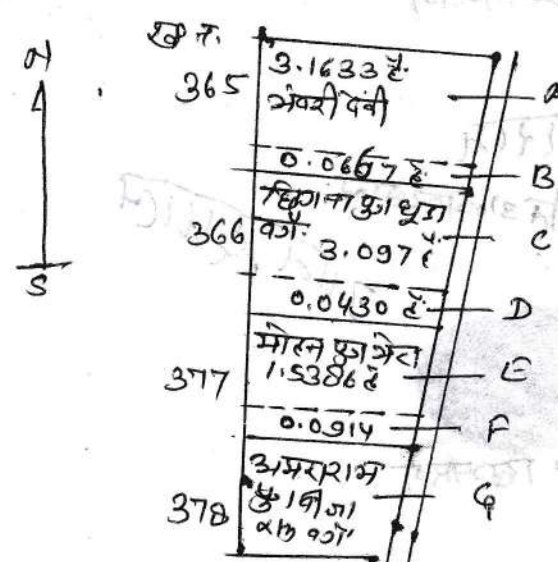 ख न.
N
S
365
3.1633 है.
भंवरी देवी
A
0.0667 है.
B
366
छिगना पुत्र धुडा
वगै.
3.097 है
C
0.0430 है.
D
377
मोहन पुत्र भेरा
1.5386 है
E
0.0914
F
378
अमराराम
पु
राम वगै
G